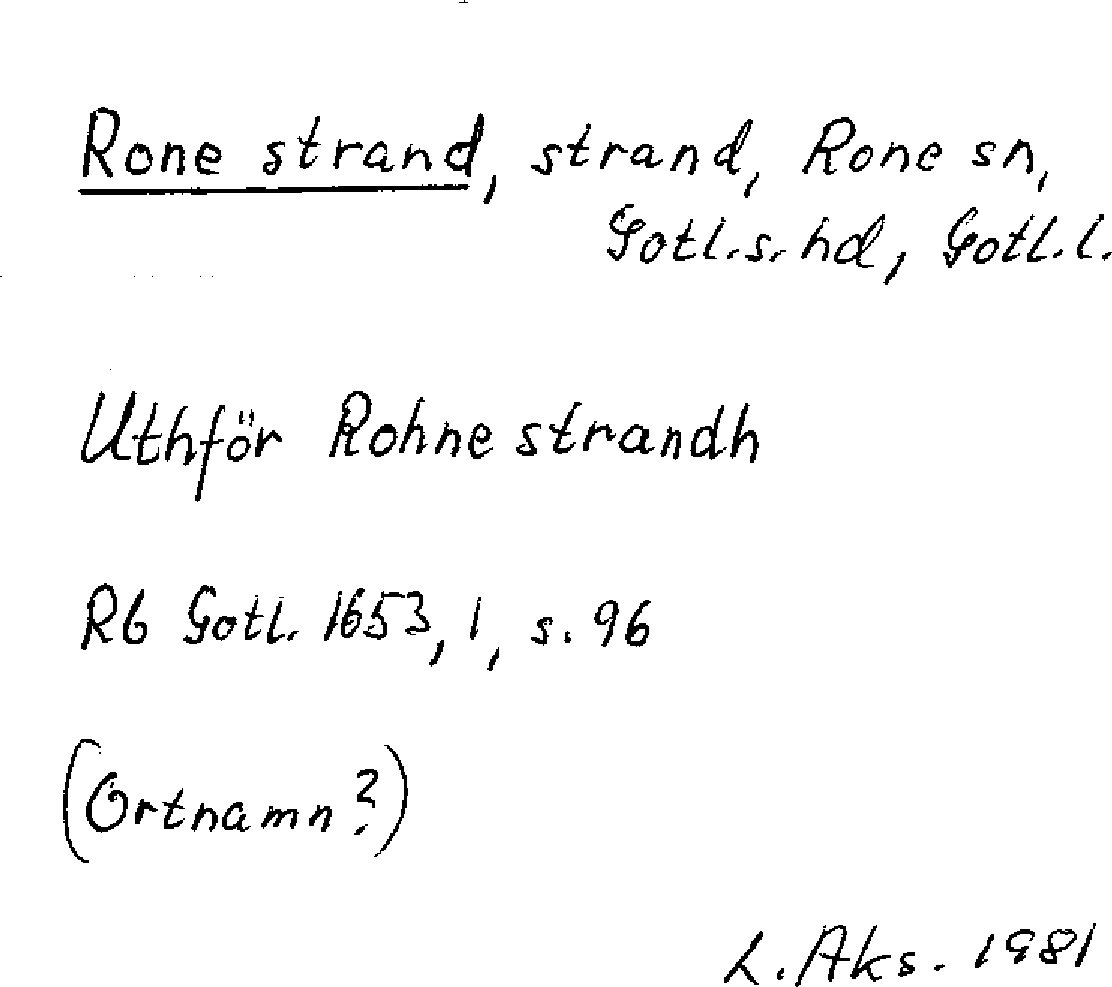 Rone strand, strand, Rone sn,
Gotl.s. hd, Gotl.l.
Uthför Rohne strandh
Rb Gotl. 1653, 1, s. 96
(Ortnamn?)
L. Aks. 1981